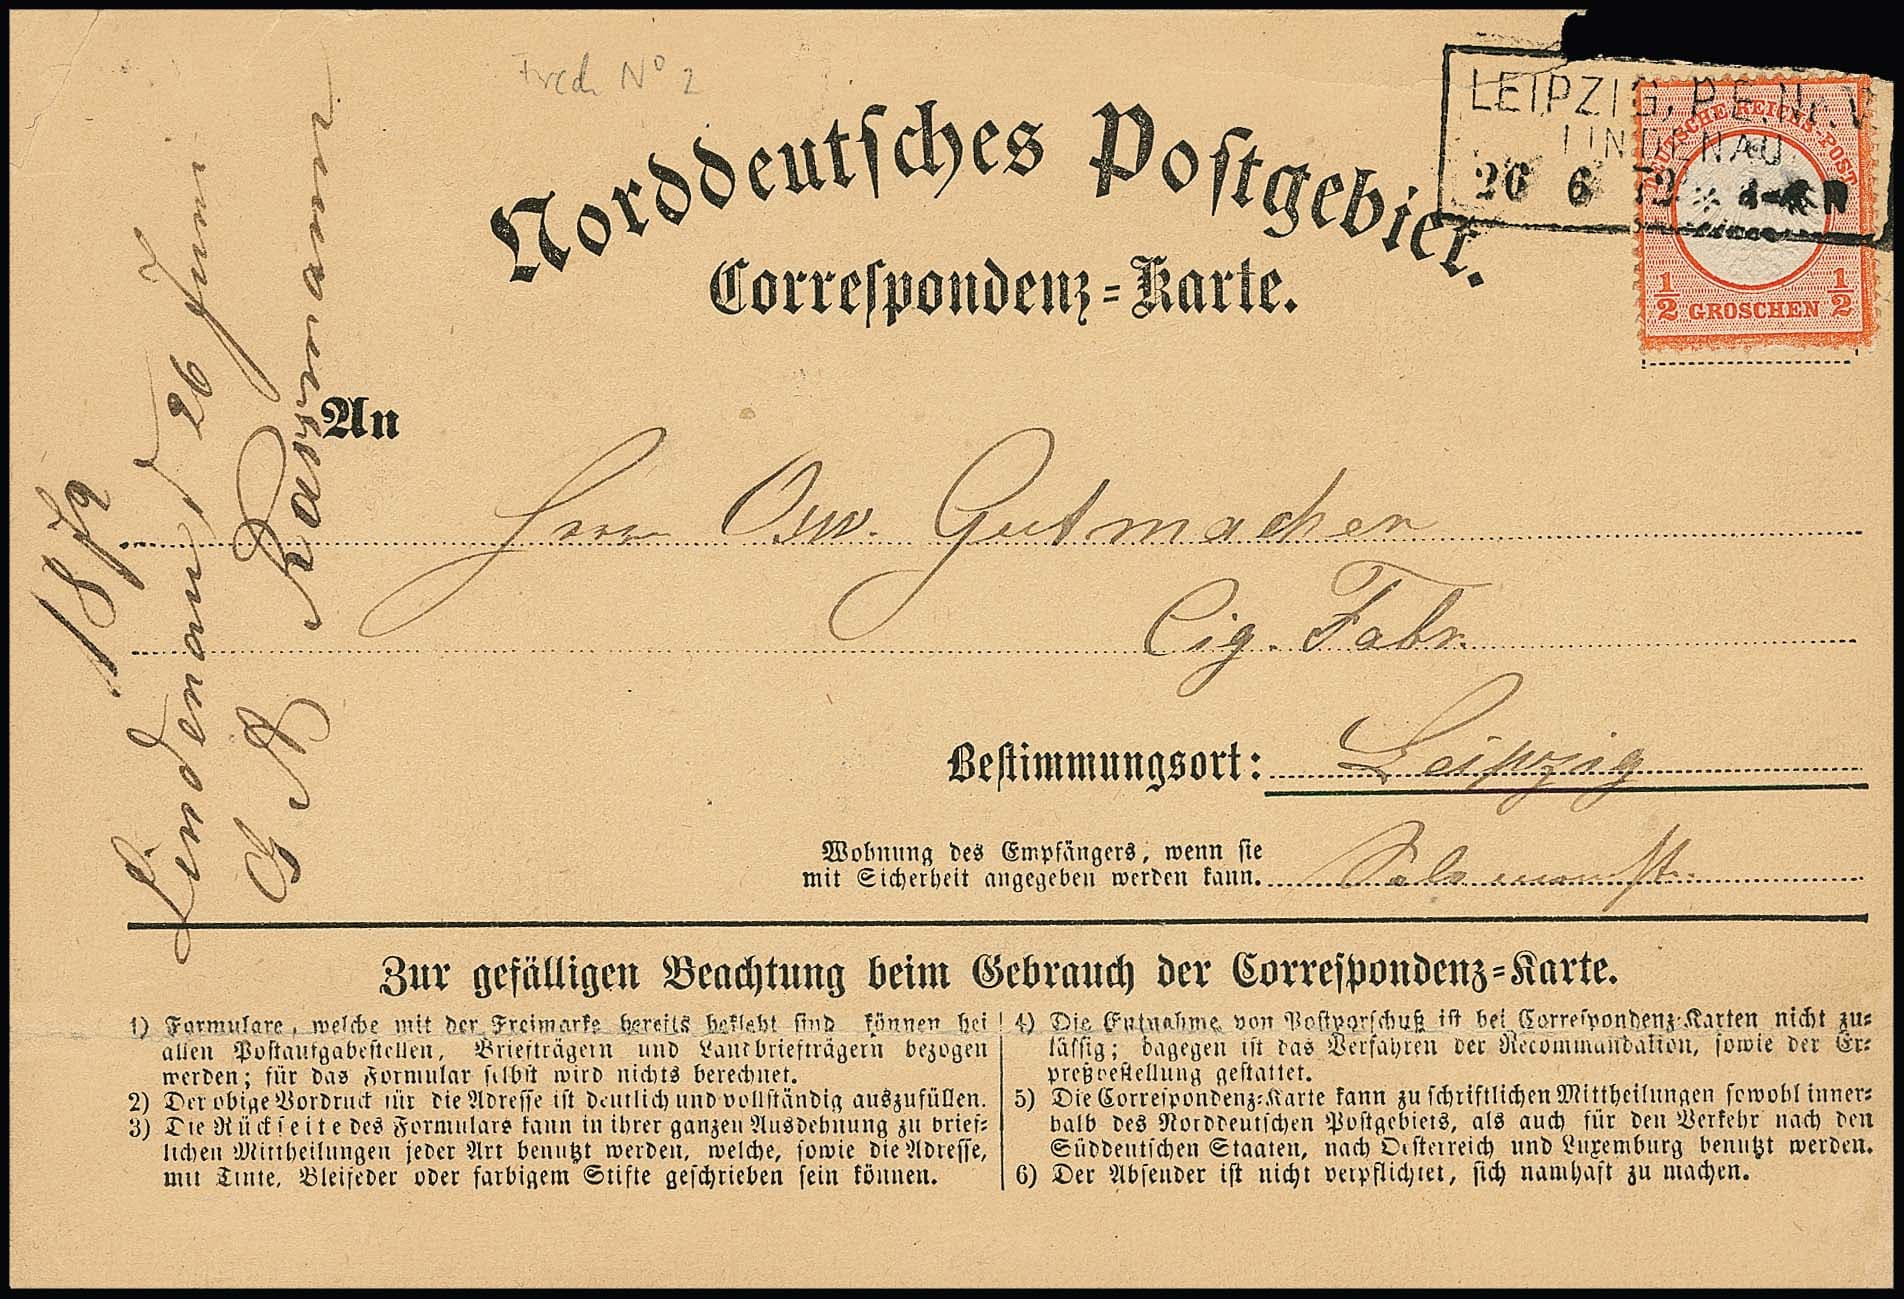 Norddeutsches Postgebiet.
Correspondenz-Karte.
LEIPZIG. P.E. Nr. V
LINDENAU
26 6 72
DEUTSCHE REICHS-POST
1/2 GROSCHEN 1/2
No 2
1872
Lindenau, d 26 Juni
An
Herrn Osw. Gutmacher
Cig. Fabr.
Bestimmungsort: Leipzig
Wohnung des Empfängers, wenn sie
mit Sicherheit angegeben werden kann. Salomonstr.
Zur gefälligen Beachtung beim Gebrauch der Correspondenz-Karte.
1) Formulare, welche mit der Freimarke bereits beklebt sind können bei
allen Postaufgabestellen, Briefträgern und Landbriefträgern bezogen
werden; für das Formular selbst wird nichts berechnet.
2) Der obige Vordruck für die Adresse ist deutlich und vollständig auszufüllen.
3) Die Rückseite des Formulars kann in ihrer ganzen Ausdehnung zu brief-
lichen Mittheilungen jeder Art benutzt werden, welche, sowie die Adresse,
mit Tinte, Bleifeder oder farbigem Stifte geschrieben sein können.
4) Die Entnahme von Postvorschuß ist bei Correspondenz-Karten nicht zu-
lässig; dagegen ist das Verfahren der Recommandation, sowie der Ex-
preßbestellung gestattet.
5) Die Correspondenz-Karte kann zu schriftlichen Mittheilungen sowohl inner-
halb des Norddeutschen Postgebiets, als auch für den Verkehr nach den
Süddeutschen Staaten, nach Oesterreich und Luxemburg benutzt werden.
6) Der Absender ist nicht verpflichtet, sich namhaft zu machen.